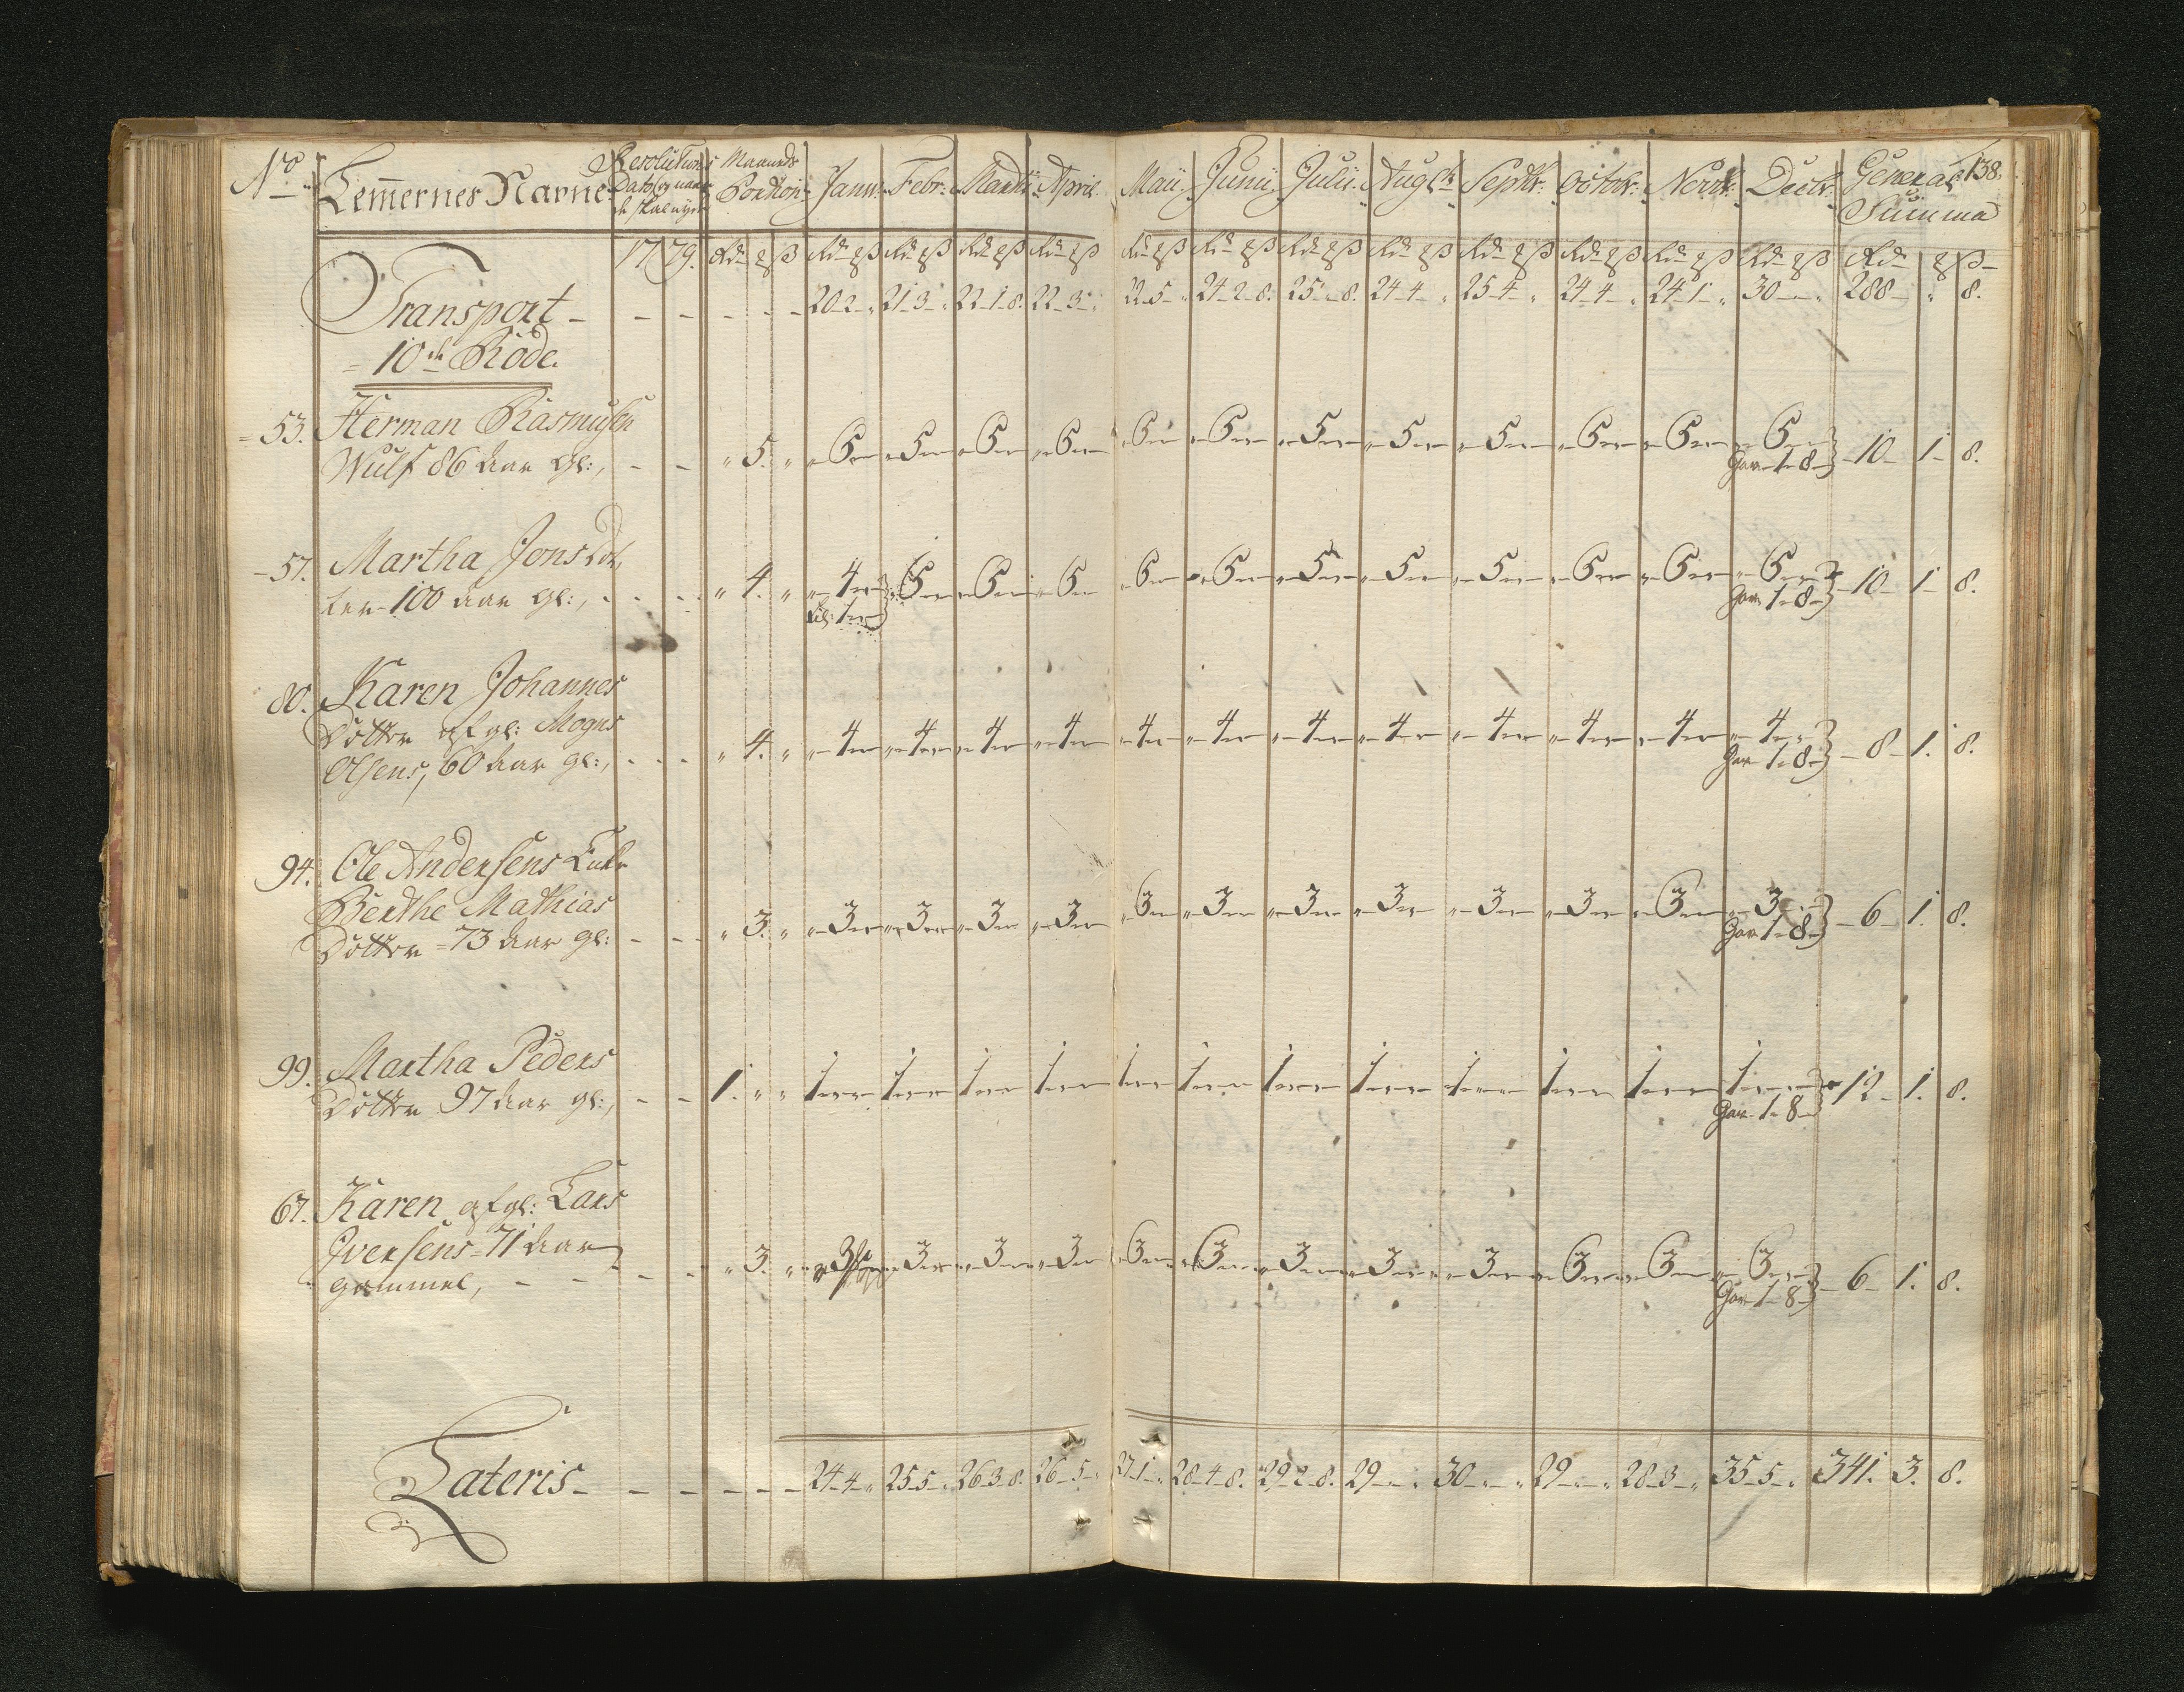 No Lemmernes Navne Resolutions Dato og naar de skal nyde Maaneds Portion Janu: Febr: Marti: April Maii. Junii Julii. Augst: Septbr: Octobr: Novbr: Decbr: General Summa 138.
1779. Rdr ß Rdr ß Rdr ß Rdr ß Rdr ß Rdr ß Rdr ß Rdr ß Rdr ß Rdr ß Rdr ß Rdr ß Rdr ß Rdr ß
Transport - - - - - - - 20-2-" 21-3-" 22-1-8. 22-3-" 22-5-" 24-2-8. 25-"-8. 24-4-" 25-4-" 24-4-" 24-1-" 30-"-" 288-"-8.
= 10de Rode.
53. Herman Rasmusen
Wulf 86 Aar gl:, - - " 5. " 5 5 5 5 5 5 5 5 5 5 5 5 Gav-1-8 10- 1- 8.
57. Martha Jons Dot
ter 100 Aar gl:, - - - " 4. " 4 5 5 5 5 5 5 5 5 5 5 5 10- 1- 8.
til: 1 Gav 1-8
80. Karen Johannes
Dotter afgl: Mogns
Olsens, 60 Aar gl:, - - - " 4. " 4 4 4 4 4 4 4 4 4 4 4 4 Gav 1-8 8- 1. 8.
94. Ole Andersens Enke
Berthe Mathias
Dotter = 73 Aar gl: - - - " 3. " 3 3 3 3 3 3 3 3 3 3 3 3 Gav 1-8 6- 1. 8.
99. Martha Peders
Dotter 97 Aar gl:, - - 1. " " 1 1 1 1 1 1 1 1 1 1 1 1 Gav-1-8 12- 1. 8.
67. Karen afgl: Lars
Iversens = 71 Aar
gammel, - - - - " 3. " 3 3 3 3 3 3 3 3 3 3 3 3 Gav-1-8 6- 1. 8.
Lateris - - - - - - 24-4-" 25-5-" 26-3-8. 26-5-" 27-1-" 28-4-8. 29-2-8. 29-"-" 30-"-" 29-"-" 28-3-" 35-5-" 341. 3. 8.